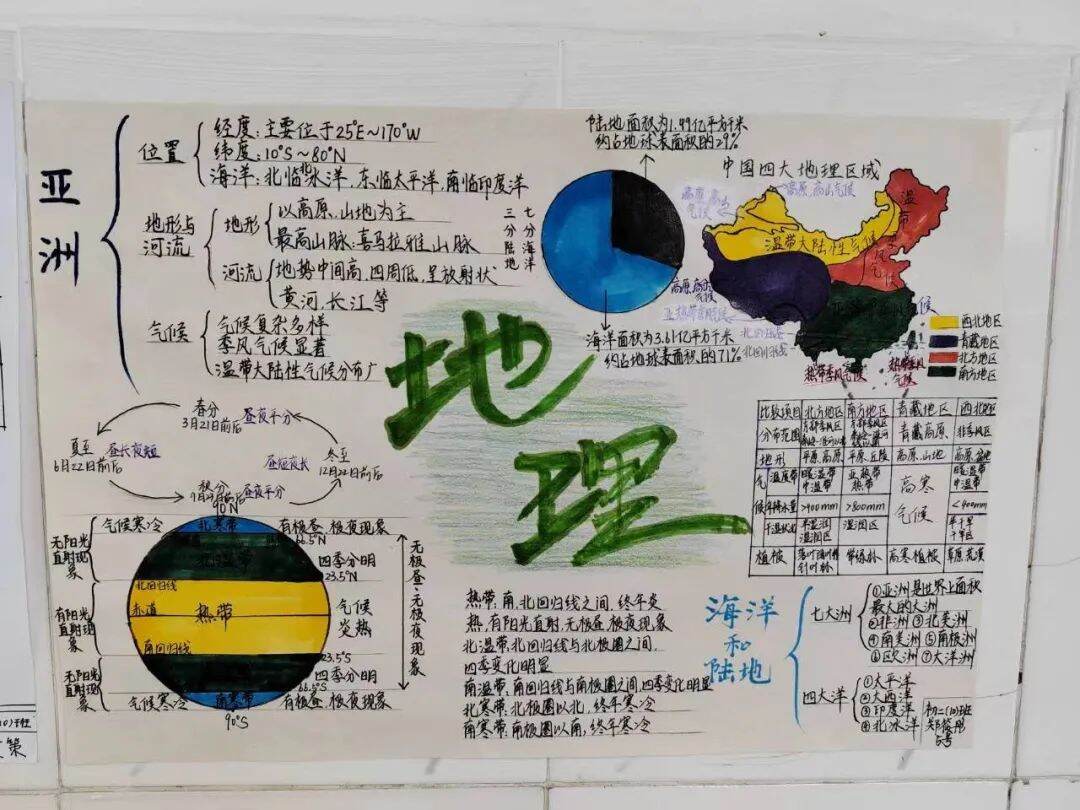 亚洲
位置
经度：主要位于25°E～170°W
纬度：10°S～80°N
海洋：北临北冰洋，东临太平洋，南临印度洋
地形与
河流
地形
以高原、山地为主
最高山脉：喜马拉雅山脉
河流
地势中间高，四周低，呈放射状
黄河、长江等
气候
气候复杂多样
季风气候显著
温带大陆性气候分布广
陆地面积为1.49亿平方千米
约占地球表面积的29%
三分陆地
七分海洋
海洋面积为3.61亿平方千米
约占地球表面积的71%
中国四大地理区域
高原、高山气候
温带大陆性气候
热带季风气候
热带季风
气候
西北地区
青藏地区
北方地区
南方地区
地理
春分
3月21日前后
昼夜平分
夏至
6月22日前后
昼长夜短
昼短夜长
冬至
12月22日前后
秋分
昼夜平分
90°N
气候寒冷
北寒带
有极昼、极夜现象
66.5°N
无阳光
直射现
象
北温带
四季分明
23.5°N
北回归线
有阳光
直射现
象
赤道
热带
气候
炎热
南回归线
23.5°S
无阳光
直射现
象
四季分明
66.5°S
气候寒冷
南寒带
有极昼、极夜现象
90°S
无极昼、无极夜现象
比较项目 北方地区 南方地区 青藏地区 西北地区
分布范围 青藏高原 非季风区
地形 平原、高原 平原、丘陵 高原、山地
气候 温度带 暖温带 中温带 亚热带 热带 高寒气候 暖温带 中温带
年降水量 >400mm >800mm <400mm
干湿状况 半湿润 湿润区 湿润区 半干旱 干旱区
植被 高寒植被 草原、荒漠
热带：南、北回归线之间，终年炎
热，有阳光直射，无极昼、极夜现象
北温带：北回归线与北极圈之间，
四季变化明显
南温带：南回归线与南极圈之间，四季变化明显
北寒带：北极圈以北，终年寒冷
南寒带：南极圈以南，终年寒冷
海洋
和
陆地
七大洲
①亚洲是世界上面积
最大的大洲
②非洲 ③北美洲
④南美洲 ⑤南极洲
⑥欧洲 ⑦大洋洲
四大洋
①太平洋
②大西洋
③印度洋
④北冰洋
初二(10)班